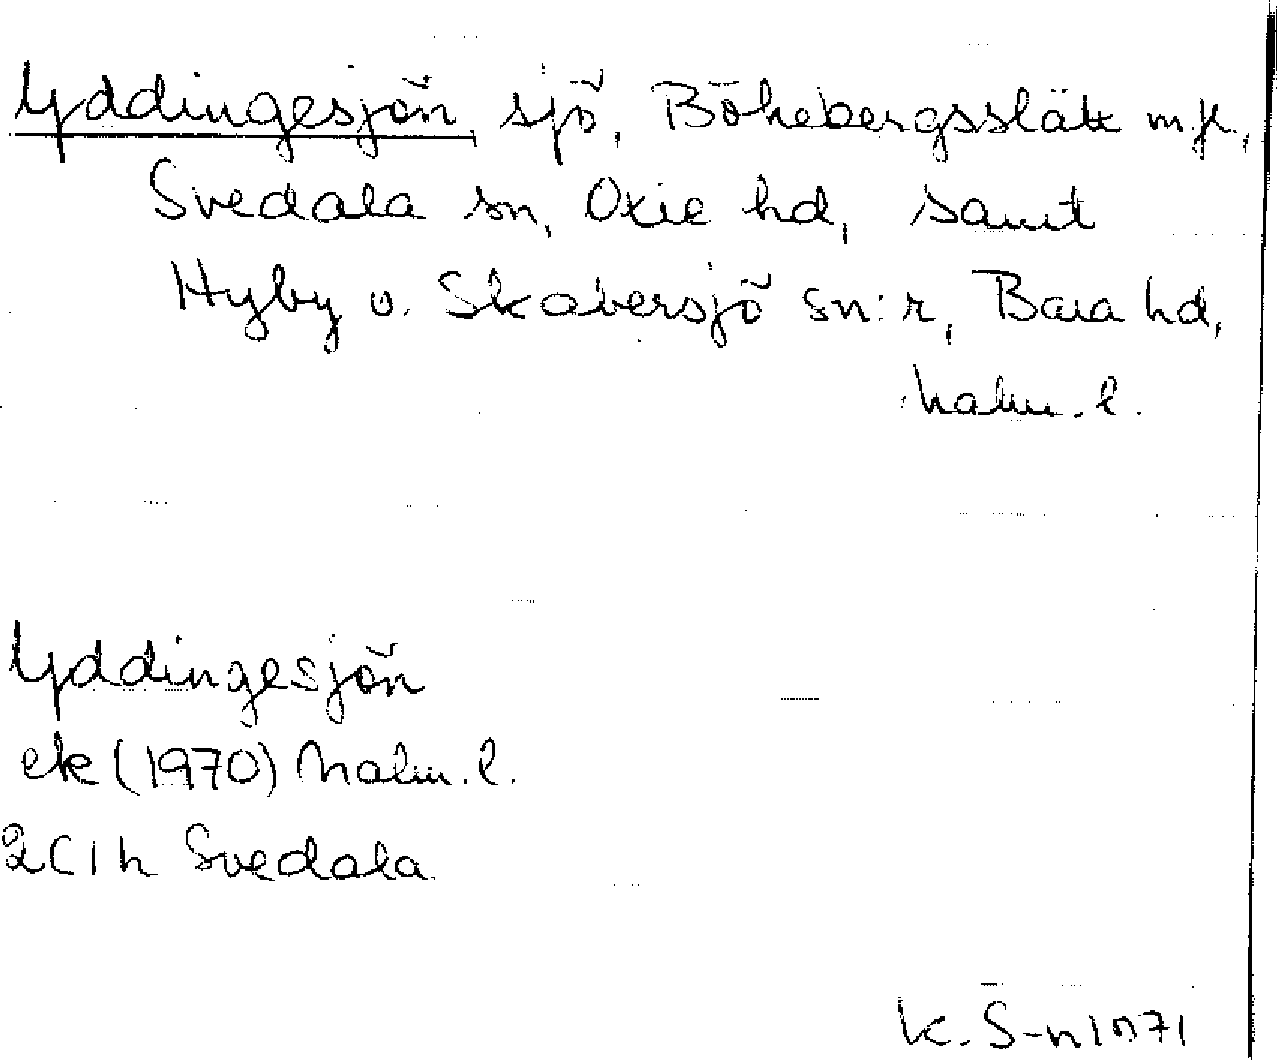 Yddingesjön sjö, Bökebergsslätt m.fl.,
Svedala sn, Oxie hd, samt
Hyby o. Skabersjö sn:r, Bara hd,
Malm. l.
Yddingesjön
ek (1970) Malm. l.
2C1h Svedala
K. S-n 1971